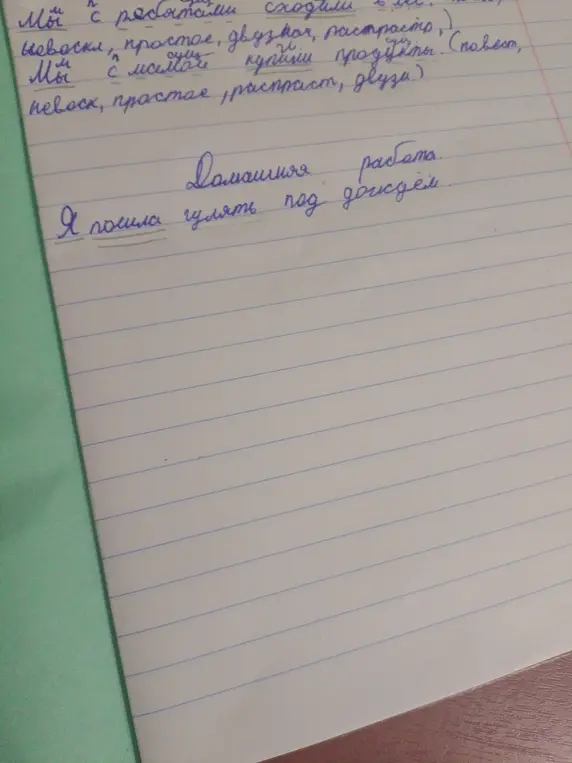 Мы с ребятами сходили в
невоскл, простое, двузкоч, распрастр,)
Мы с мамой купили продукты. (повест,
невоск, простое, распраст, двузи)
Домашняя работа.
Я пошла гулять под дождём.